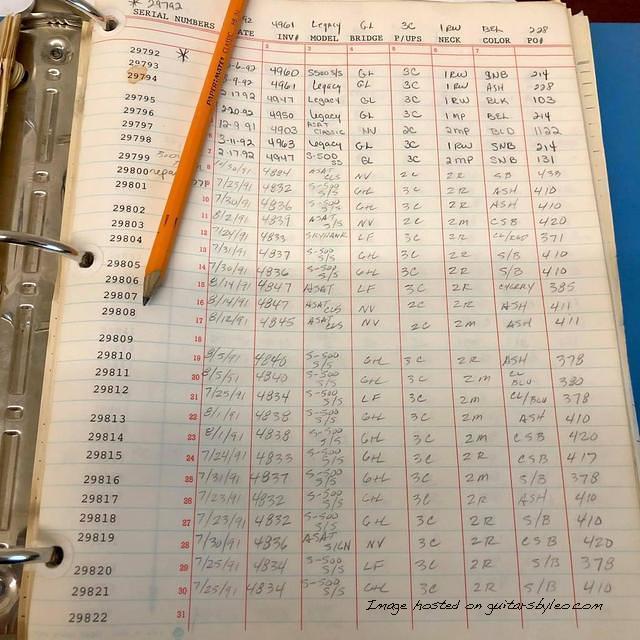 * 29792 92 4961 Legacy GL 3C 1RW BEL 228
SERIAL NUMBERS DATE INV# MODEL BRIDGE P/UPS NECK COLOR PO#
29792 *
29793 6-92 4960 S500 S/S GL 3C 1RW SNB 214
29794 9-92 4961 Legacy GL 3C 1RW ASH 228
29795 17-92 4947 Legacy GL 3C 1RW BLK 103
29796 20-92 4950 Legacy GL 3C 1MP BEL 214
29797 12-9-91 4903 ASAT CLASSIC NV 2C 2MP BLD 1122
29798 3-11-92 4963 Legacy GL 3C 1RW SNB 214
29799 2-17-92 4947 S-500 SS BL 3C 2MP SNB 131
29800 /30/91 4884 ASAT S/S NV 2C 2R SB 433
29801 7/25/91 4832 S-500 S/S GHL 3C 2R ASH 410
29802 7/30/91 4836 S-500 S/S GHL 3C 2R ASH 410
29803 8/2/91 4839 ASAT S/S NV 2C 2M CSB 420
29804 7/24/91 4833 SKYHAWK LF 3C 2R CL/RED 371
7/31/91 4837 S-500 S/S GHL 3C 2R S/B 410
29805 7/30/91 4836 S-500 S/S GHL 3C 2R S/B 410
29806 8/14/91 4847 ASAT LF 3C 2R CHERRY 385
29807 8/14/91 4847 ASAT CLS NV 2C 2R ASH 411
29808 8/12/91 4845 ASAT CLS NV 2C 2M ASH 411
29809
29810 8/5/91 4840 S-500 S/S GHL 3C 2R ASH 378
29811 8/5/91 4840 S-500 S/S GHL 3C 2M CL BLU 380
29812 7/25/91 4834 S-500 S/S LF 3C 2R CL/BLU 378
29813 8/1/91 4838 S-500 S/S GHL 3C 2M ASH 410
29814 8/1/91 4838 S-500 S/S GHL 3C 2M CSB 420
29815 7/24/91 4833 S-500 S/S GHL 3C 2R CSB 417
29816 7/31/91 4837 S-500 S/S GHL 3C 2M S/B 378
29817 7/23/91 4832 S-500 S/S GHL 3C 2R ASH 410
29818 7/23/91 4832 S-500 S/S GHL 3C 2R S/B 410
29819 7/30/91 4836 ASAT SIGN NV 3C 2R CSB 420
29820 7/25/91 4834 S-500 S/S LF 3C 2R S/B 378
29821 7/25/91 4834 S-500 S/S GHL 3C 2R S/B 410
29822 31
Image hosted on guitarsbyleo.com